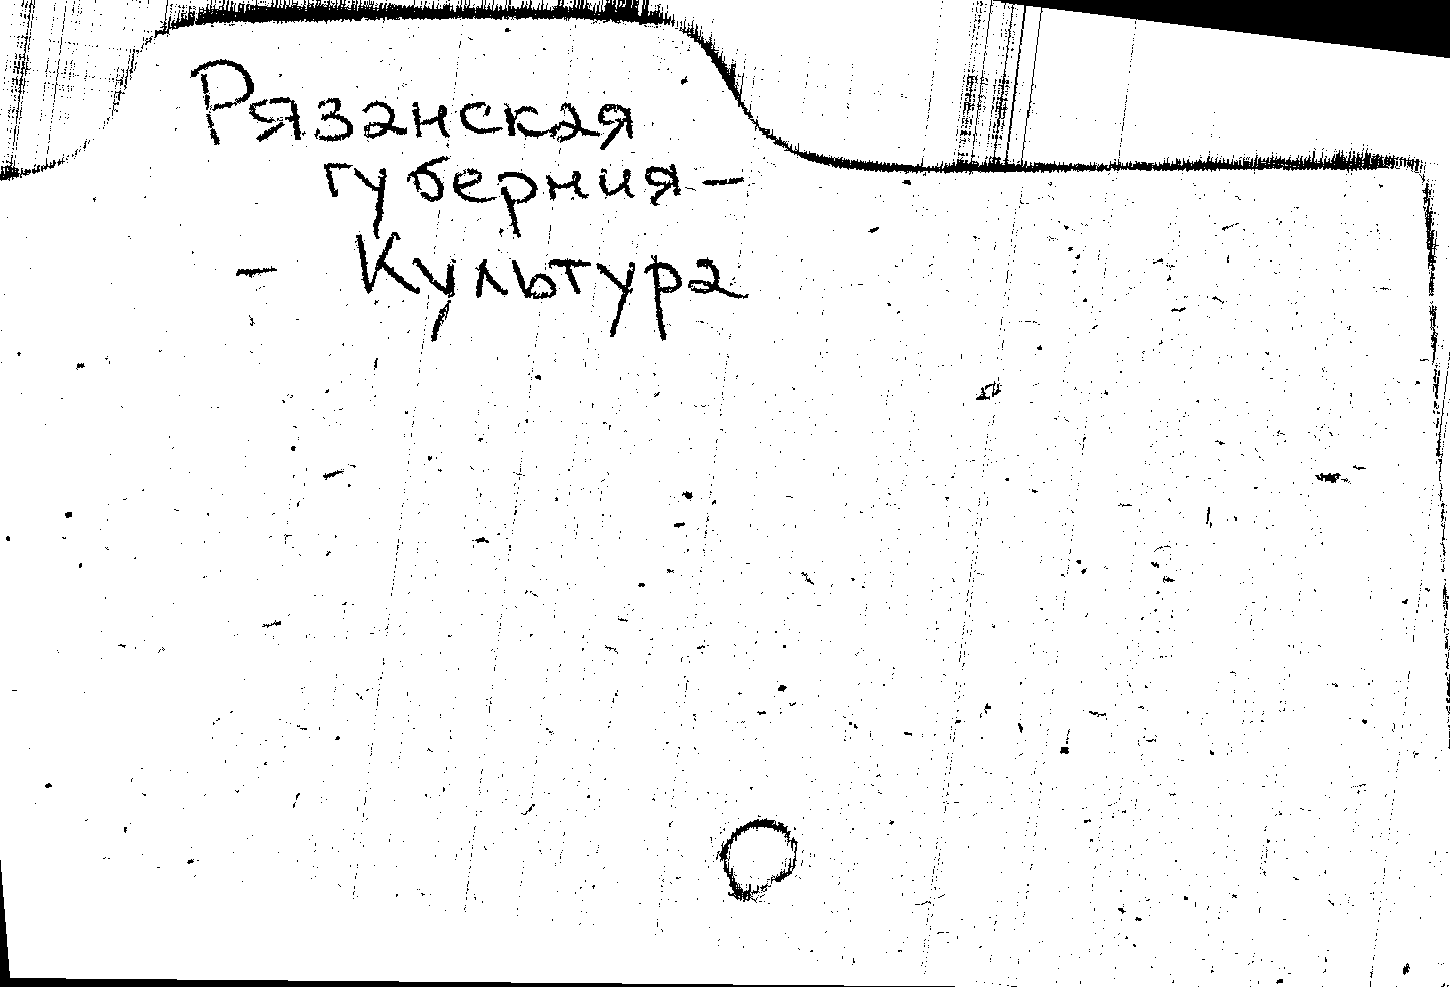 Рязанская
губерния –
– Культура